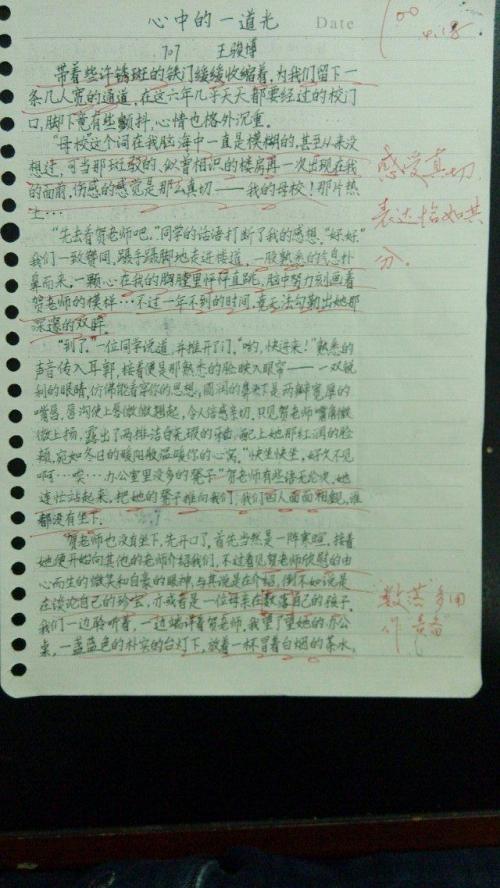 心中的一道光
Date
707 王骏博
100
4.18
带着些许锈斑的铁门缓缓收缩着，为我们留下一
条几人宽的通道，在这六年几乎天天都要经过的校门
口，脚下竟有些颤抖，心情也格外沉重。
“母校”这个词在我脑海中一直是模糊的，甚至从来没
想过，可当那斑驳的、似曾相识的楼房再一次出现在我
的面前，伤感的感觉是那么真切——我的母校！那片热
土…
感受真切
表达恰如其
分。
“先去看贺老师吧。”同学的话语打断了我的感想。“好，好。”
我们一致赞同，蹑手蹑脚地走进楼道，一股熟悉的气息扑
鼻而来。一颗心在我的胸膛里怦怦直跳，脑中努力刻画着
贺老师的模样…不过一年不到的时间，竟无法勾勒出她那
深邃的双眸。
“到了。”一位同学说道，并推开了门。“哟，快进来！”熟悉的
声音传入耳郭，接着便是那熟悉的脸映入眼帘——一双锐
利的眼睛，仿佛能看穿你的思想，圆润的鼻头下是两瓣宽厚的
嘴唇，唇沟使上唇微微翘起，令人倍感亲切，只见贺老师嘴角微
微上扬，露出了两排洁白无瑕的牙齿，配上她那红润的脸
颊，宛如冬日的暖阳般温暖你的心窝。“快坐快坐，好久不见
啊…哎…办公室里没多的凳子”贺老师有些语无伦次，她
连忙站起来，把她的凳子推向我们，我们四人面面相觑，谁
都没有坐下。
贺老师也没有坐下，先开口了，首先当然是一阵寒暄，接着
她便开始向其他的老师介绍我们，不过看见贺老师欣慰的由
心而生的微笑和自豪的眼神，与其说是在介绍，倒不如说是
在谈论自己的珍宝，亦或者是一位母亲在数落自己的孩子。
我们一边聆听着，一边端详着贺老师，我望了望她的办公
桌，一盏蓝色的朴实的台灯下，放着一杯冒着白烟的茶水，
“数落”多用
作“责备”